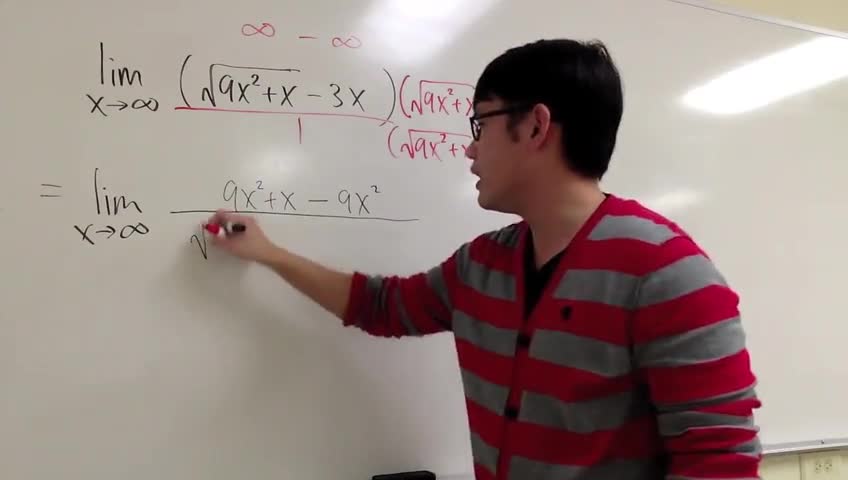 ∞ − ∞
lim x→∞ (√9x²+x − 3x)(√9x²+x
1 (√9x²+x
= lim x→∞ 9x²+x − 9x²
√